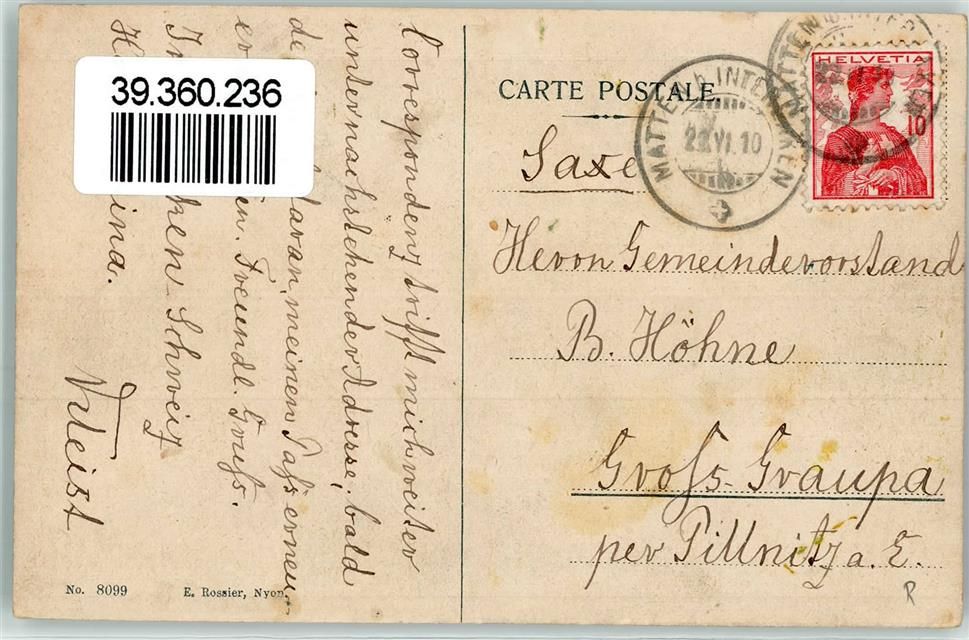 39.360.236
Correspondenz trifft mich weiter
unter nachstehender Adresse, bald
de daran, meinen Paß erneu-
en. Freundl. Gruß.
ken Schweiz
ina.
Kleist
No. 8099
E. Rossier, Nyon
CARTE POSTALE
MATTEN b. INTERLAKEN
22.VI.10
HELVETIA
10
Saxe
Herrn Gemeindevorstand
B. Höhne
Groß-Graupa
per Pillnitz a. E.
R